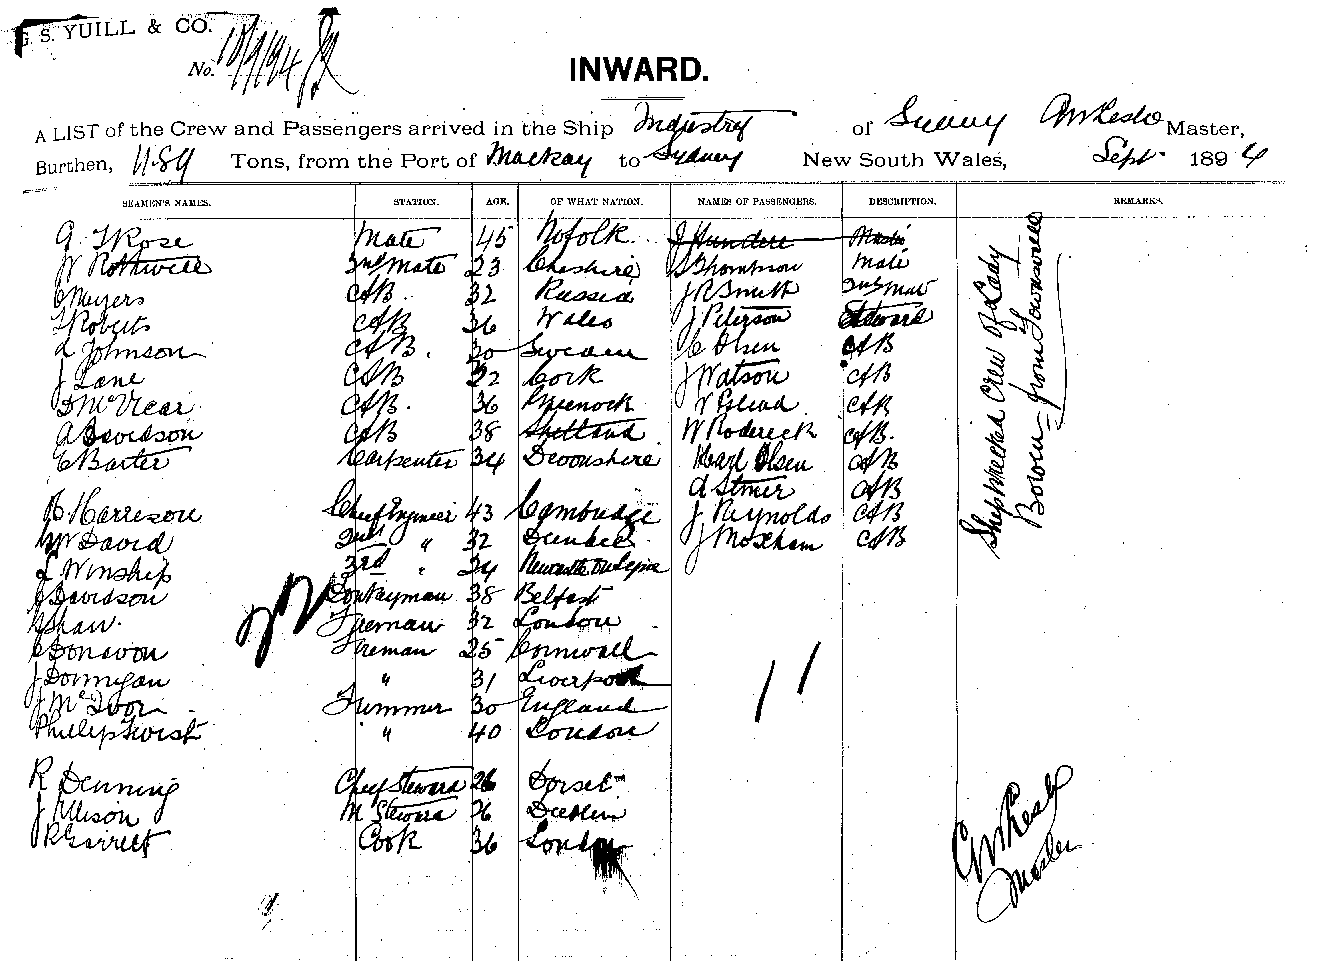 G. S. YUILL & CO.
No. 10/9/94
INWARD.
A LIST of the Crew and Passengers arrived in the Ship Industry of Sydney Master,
Burthen, 1189 Tons, from the Port of Mackay to Sydney New South Wales, Sept. 1894
SEAMEN'S NAMES. STATION. AGE. OF WHAT NATION. NAMES OF PASSENGERS. DESCRIPTION. REMARKS.
Rose Mate 45 Nofolk
W Rothwell 2nd Mate 23 Cheshire Thompson Mate
C Meyers AB. 32 Russia J R Smith 2nd Mate
T Roberts AB 36 Wales J Peterson Steward
Johnson AB. 30 Sweden C Olsen AB
J Lane AB 22 Cork J Watson AB
D McVicar AB. 36 Greenock AB
A Davidson AB 38 Shetland W Roderick AB.
E Barter Carpenter 34 Devonshire Karl Olsen AB
AB
Harrison Chief Engineer 43 Cambridge J Reynolds AB
David 2nd " 32 Dundee J Moxham AB
Winship 3rd " 24 Newcastle on Tyne
J Davidson Donkeyman 38 Belfast
Shaw. Fireman 32 London
C Donavon Fireman 25 Cornwall
J Dornigan " 31 Liverpool
J McIvor Trimmer 30 England
Phillip Twist " 40 London
R Denning Chief Steward 26 Dorset
J Allison M Steward 26 Dublin
R Garrett Cook 36 London
Shipwrecked Crew of Lady
Bowen from Townsville
11
Master